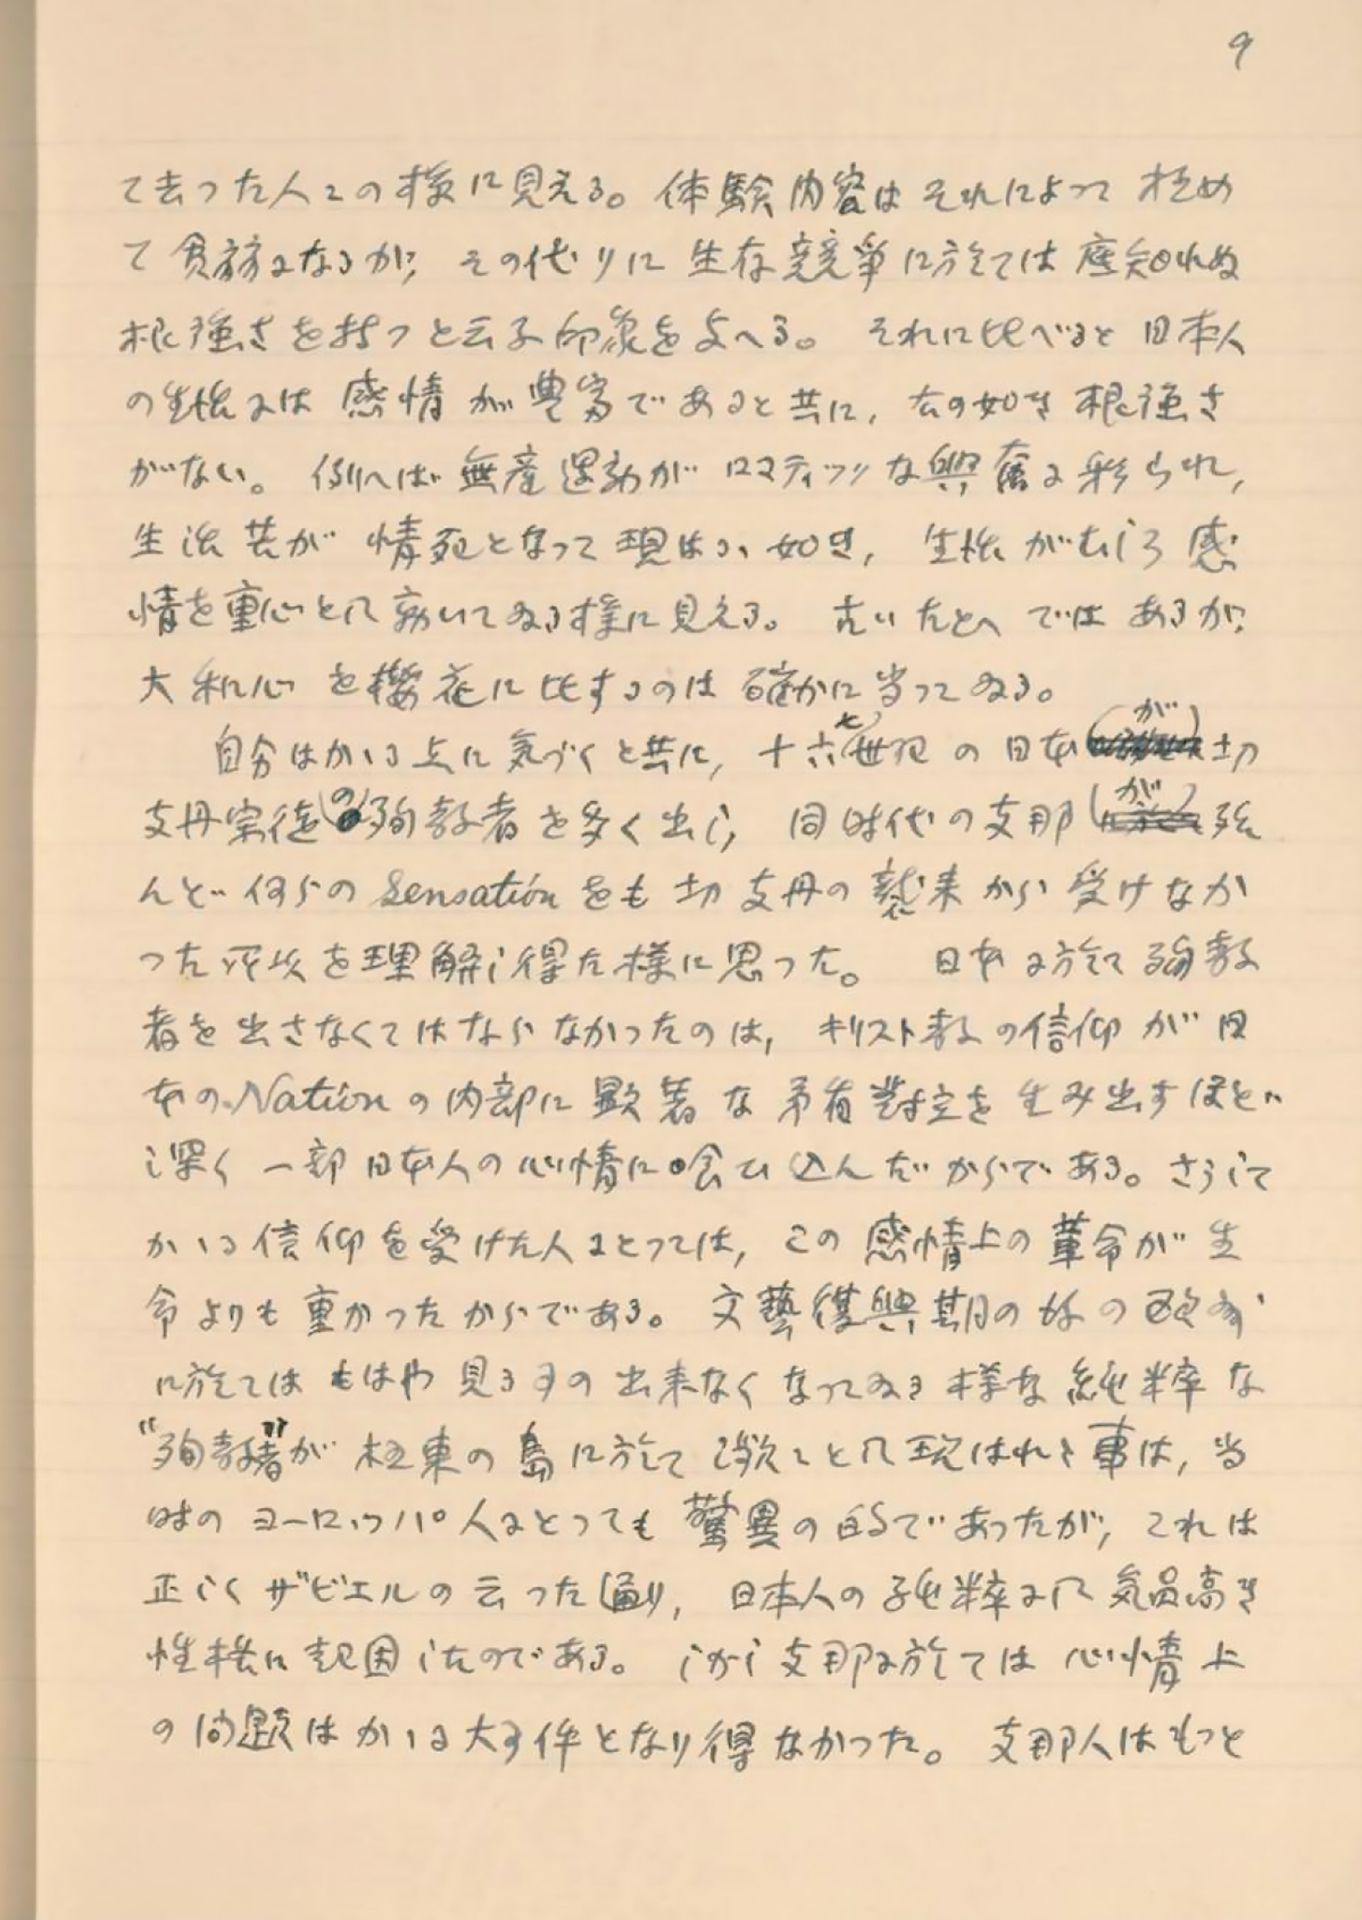 9
て去つた人々の様に見える。体験内容はそれによつて極め
て貧弱になるが、その代りに生存競争に於ては底知れぬ
根強さを持つと云ふ印象を与へる。それに比べると日本人
の生活には感情が豊富であると共に、右の如き根強さ
がない。例へば無産運動がロマティックな興奮に彩られ、
生活苦が情死となつて現はるゝ如き、生活がむしろ感
情を重心として動いてゐる様に見える。古いたとへではあるが、
大和心を櫻花に比するのは確かに当つてゐる。
自分はかゝる点に気づくと共に、十六七世紀の日本が切
支丹宗徒の殉教者を多く出し、同時代の支那が殆
んど何らのSensationをも切支丹の襲来から受けなか
つた所以を理解し得た様に思つた。日本に於て殉教
者を出さなくてはならなかつたのは、キリスト教の信仰が日
本のNationの内部に顕著な矛盾対立を生み出すほど
深く一部日本人の心情に喰ひ込んだからである。さうして
かゝる信仰を受けた人にとつては、この感情上の革命が生
命よりも重かつたからである。文藝復興期の後の欧州
に於てはもはや見る事の出来なくなつてゐる様な純粋な
"殉教者"が極東の島に於て続々として現はれた事は、当
時のヨーロッパ人にとつても驚異の的であつたが、これは
正しくザビエルの云つた通り、日本人の純粋にして気品高き
性格に起因したのである。しかし支那に於ては心情上
の問題はかゝる大事件となり得なかつた。支那人はもつと